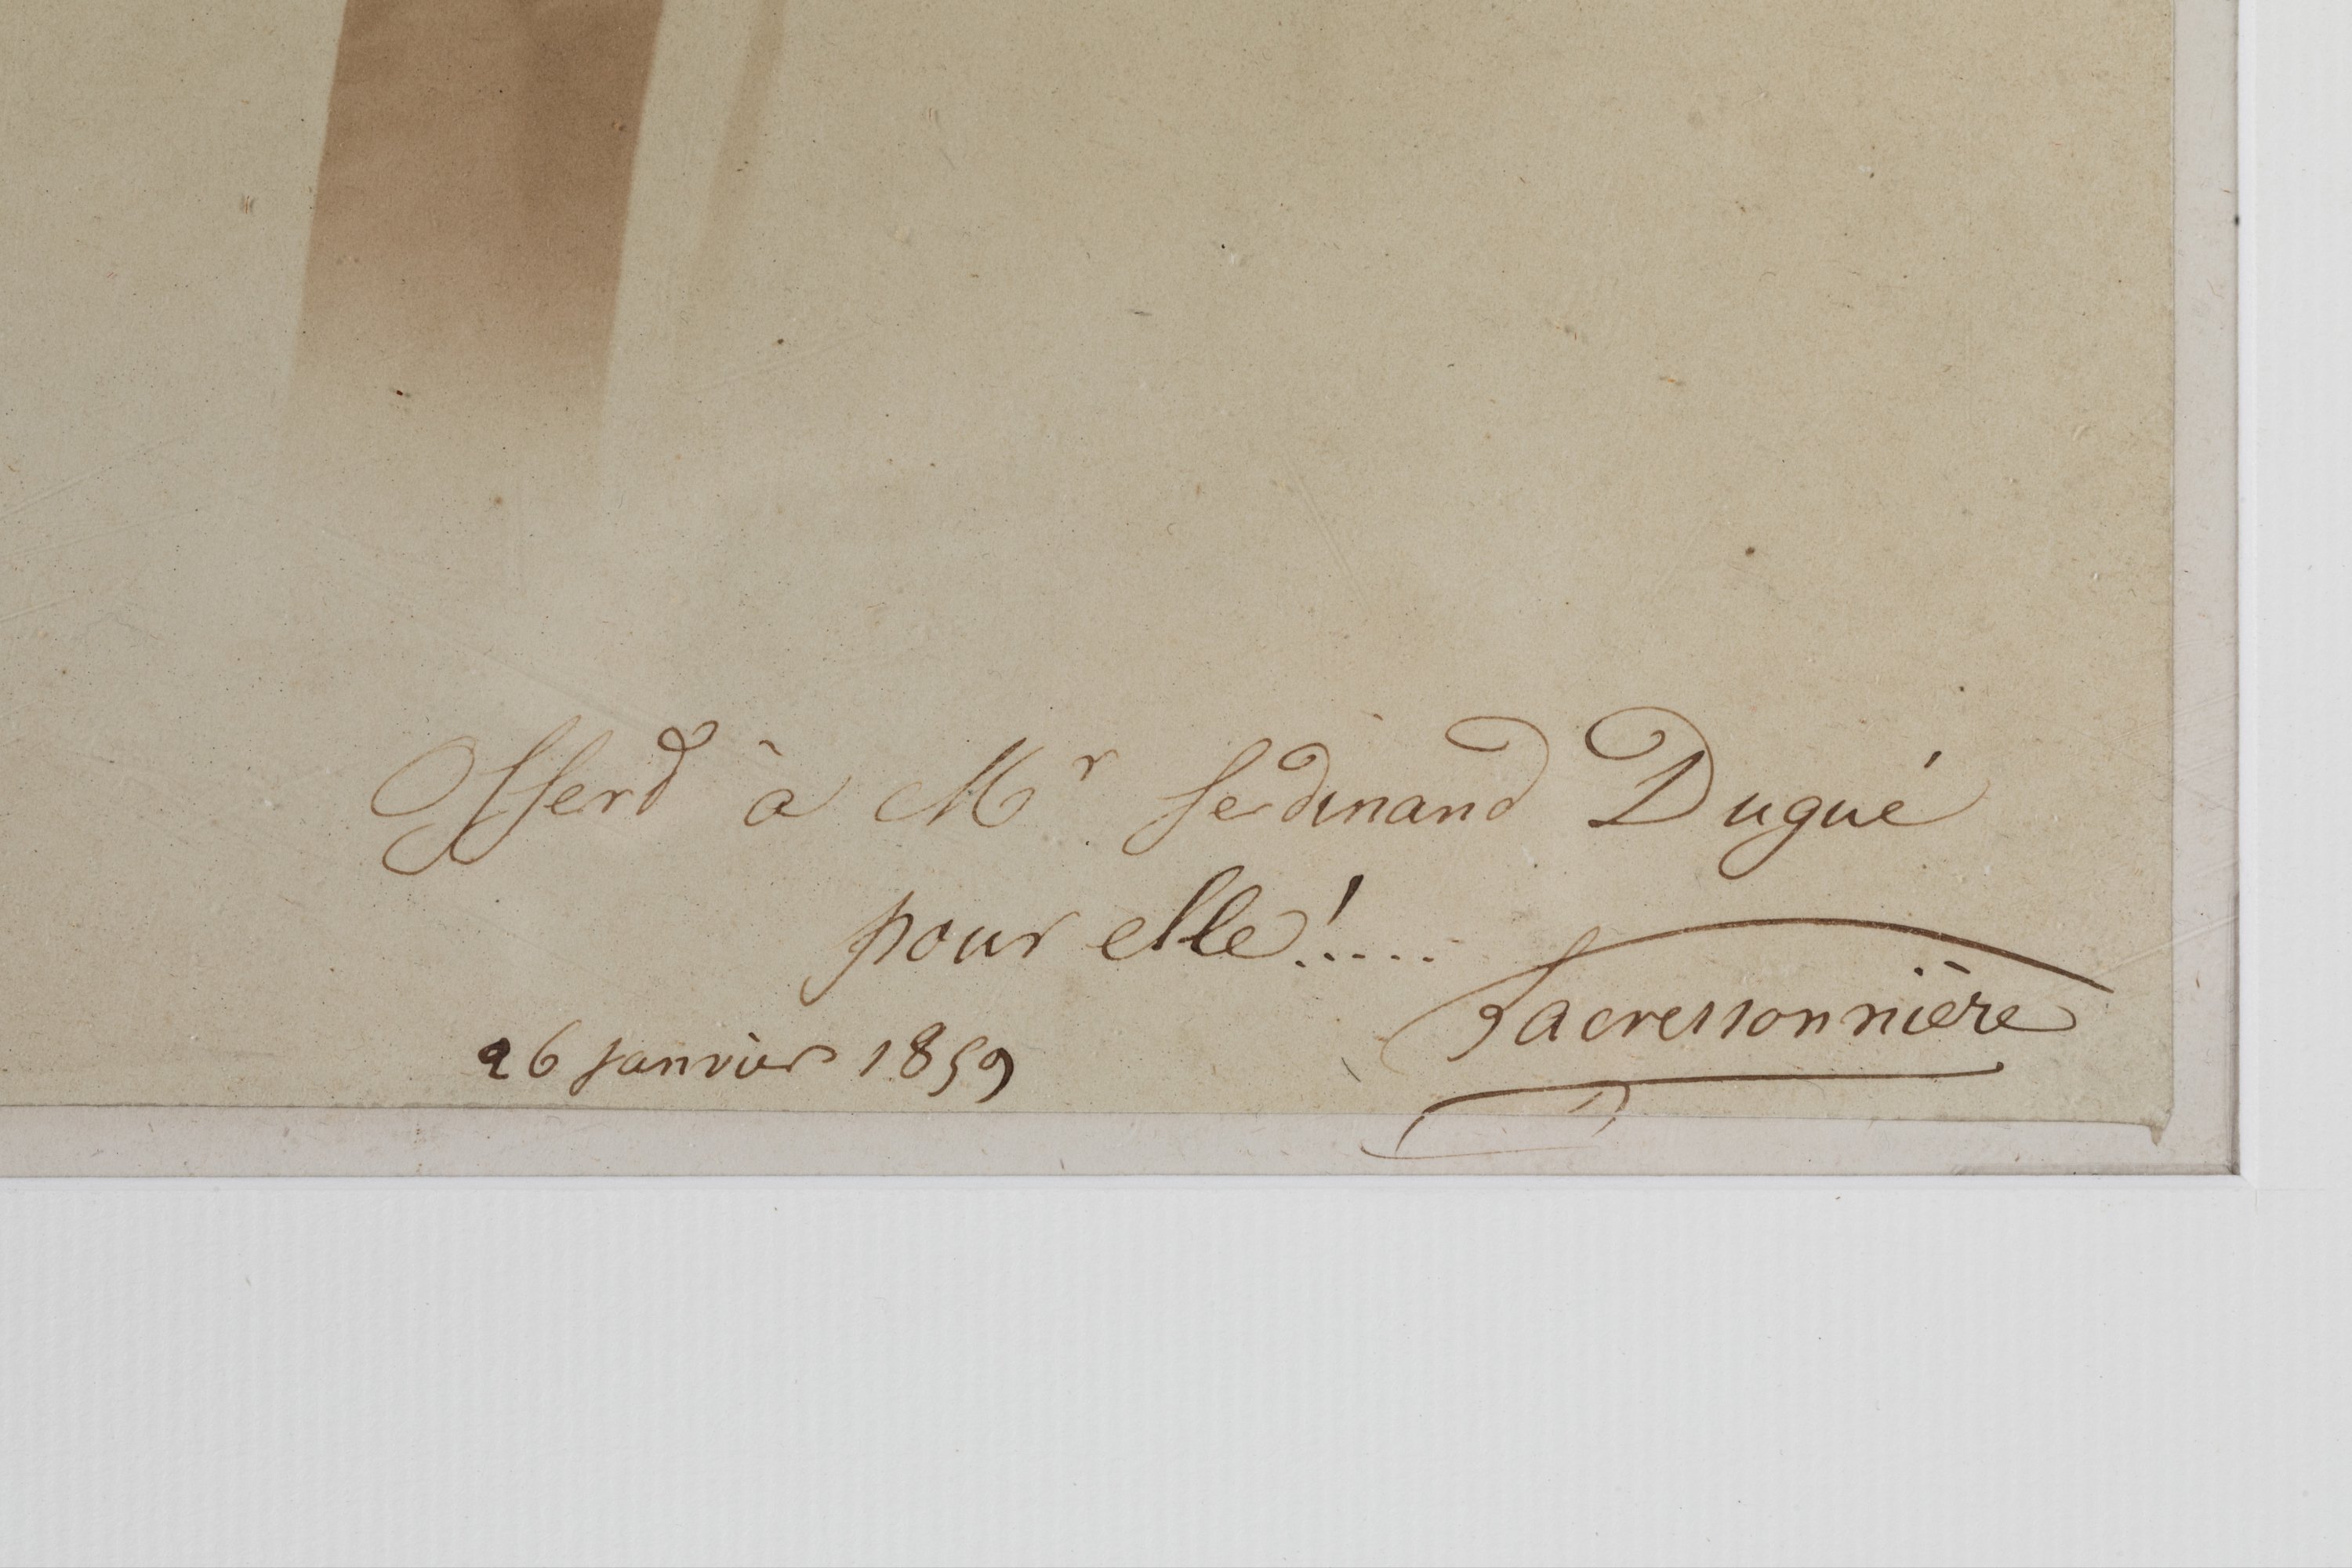 Offerd à Mr ferdinand Dugué
pour elle!.....
Lacressonnière
26 janvier 1859